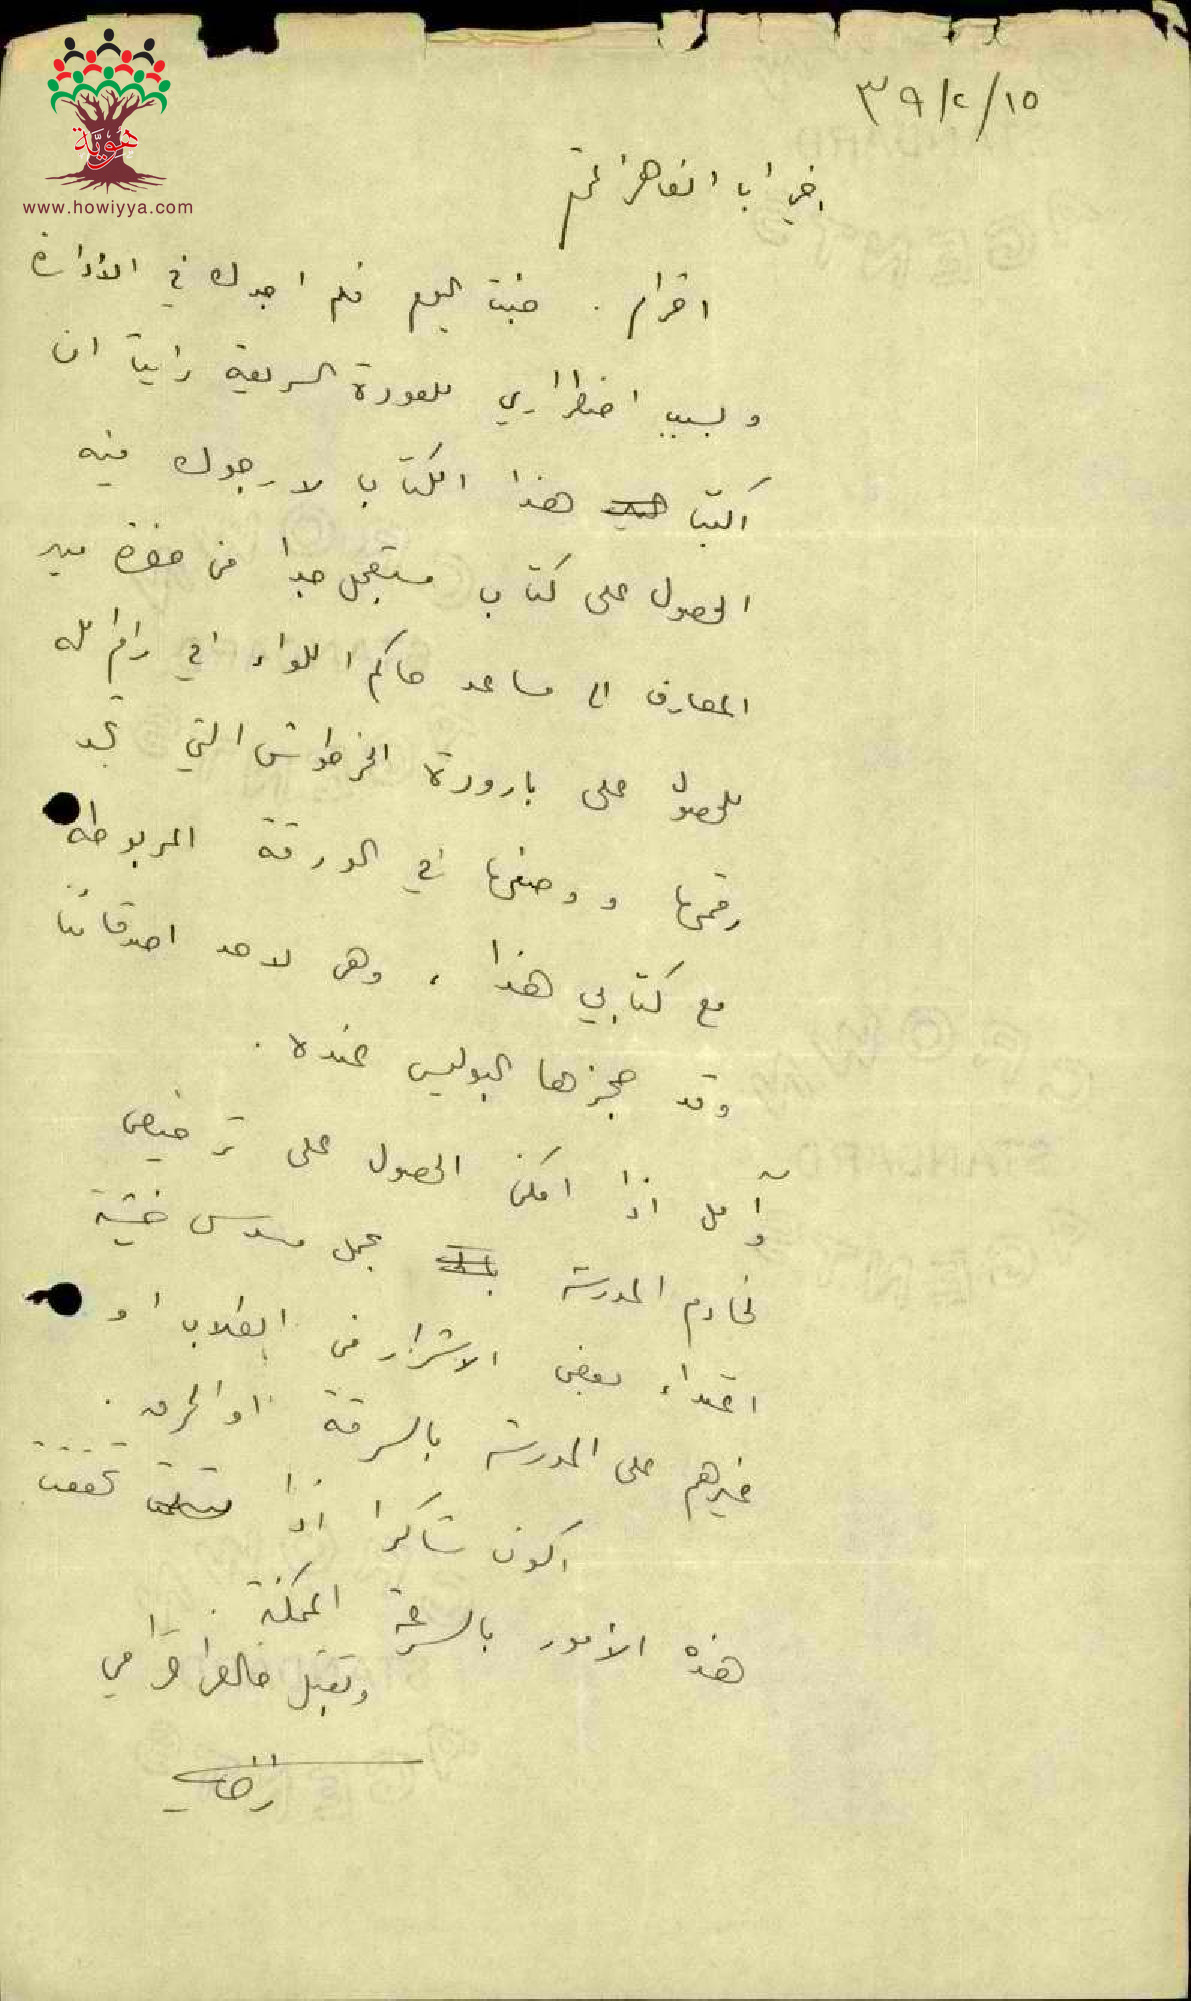 هوية
www.howiyya.com
٣٩/٢/١٥
اخي ابا
احترام . جئت اليوم فلم اجدك في الادارة
وبسبب اضطراري للعودة السريعة رأيت ان
اكتب هذا الكتاب لارجوك فيه
الحصول على كتاب مستعجل جدا من حضرة مدير
المعارف الى مساعد حاكم اللواء في رام الله
للحصول على بارودة الخرطوش التي تجد
رقمها ووصفها في الورقة المربوطه
مع كتابي هذا ، وهي لاحد اصدقائنا
وقد حجزها البوليس عنده .
وآمل اذا امكن الحصول على ترخيص
لخادم المدرسة بحمل مسدس خشية
اعتداء بعض الاشرار من الطلاب او
غيرهم على المدرسة بالسرقة او الحرق .
اكون شاكرا اذا تحققت
هذه الامور بالسرعة الممكنة .
وتقبل خالص احترامي